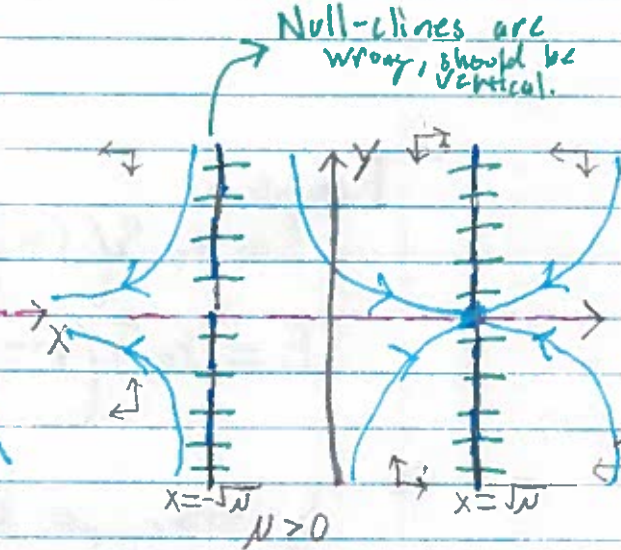 Null-clines are
wrong, should be
vertical.
Y
X
x=-√μ
x=√μ
μ>0